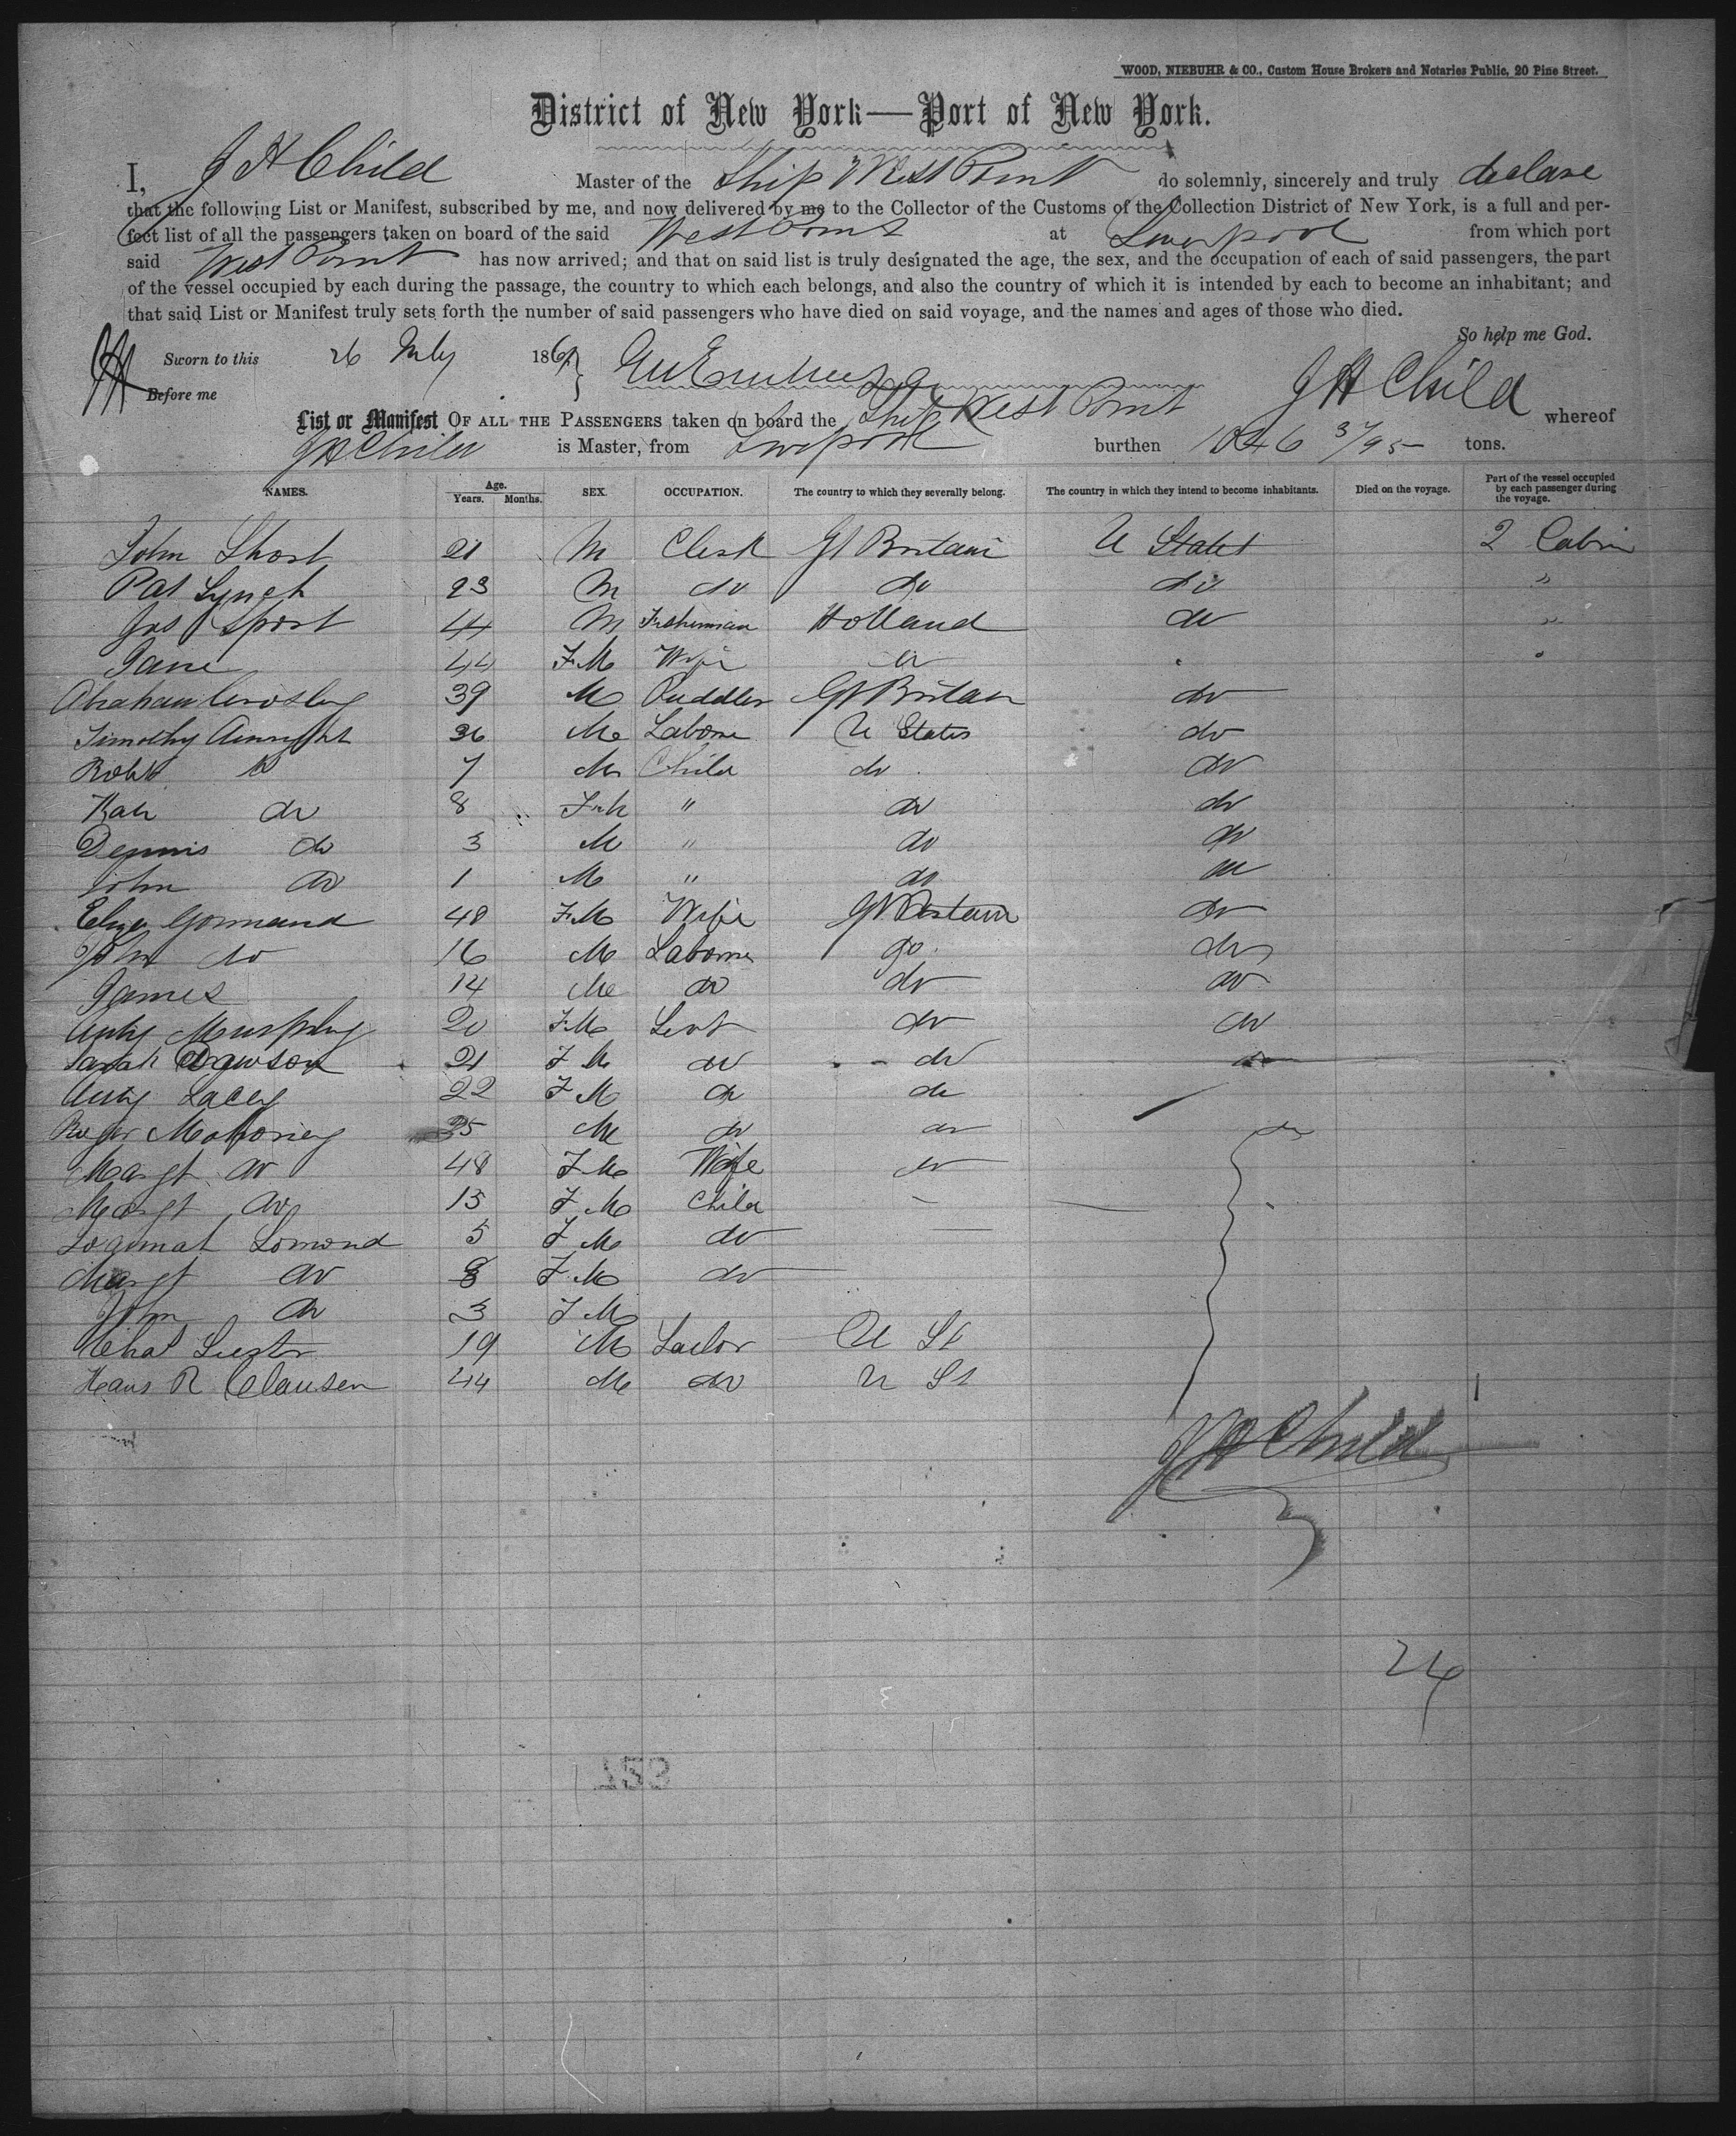 WOOD, NIEBUHR & CO., Custom House Brokers and Notaries Public, 20 Pine Street.
District of New York—Port of New York.
I, J H Child Master of the Ship West Point do solemnly, sincerely and truly declare
that the following List or Manifest, subscribed by me, and now delivered by me to the Collector of the Customs of the Collection District of New York, is a full and per-
fect list of all the passengers taken on board of the said West Point at Liverpool from which port
said West Point has now arrived; and that on said list is truly designated the age, the sex, and the occupation of each of said passengers, the part
of the vessel occupied by each during the passage, the country to which each belongs, and also the country of which it is intended by each to become an inhabitant; and
that said List or Manifest truly sets forth the number of said passengers who have died on said voyage, and the names and ages of those who died.
So help me God.
Sworn to this 26 July 186
Before me
J H Child
List or Manifest OF ALL THE PASSENGERS taken on board the Ship West Point whereof
J H Child is Master, from Liverpool burthen 1046 37/95 tons.
NAMES. Age. Years. Months. SEX. OCCUPATION. The country to which they severally belong. The country in which they intend to become inhabitants. Died on the voyage. Part of the vessel occupied by each passenger during the voyage.
John Short 21 M Clerk Gt Britain U States 2 Cabin
Pat Lynch 23 M do do do "
Jas Sport 44 M Fisherman Holland do "
Jane 44 F.M Wife do
Abraham Crosley 39 M Puddler Gt Britain do
Timothy 36 M Laborer U States do
Robt do 7 M Child do do
Kate do 8 F.M " do do
Dennis do 3 M " do do
John do 1 M " do do
Eliza Gormand 48 F.M Wife Gt Britain do
John do 16 M Laborer do do
James 14 M do do do
Murphy 20 F.M Servt do do
Sarah Dawson 21 F M do do do
Lacey 22 F M do do
Roger Mahoney 25 M do do do
Margt do 48 F.M Wife do
Margt do 13 F.M Child
Lomond 5 F M do
Margt do 8 F.M do
John do 3 F M
Chas 19 M Tailor U St
Hans R Clausen 44 M do U St
J H Child
24